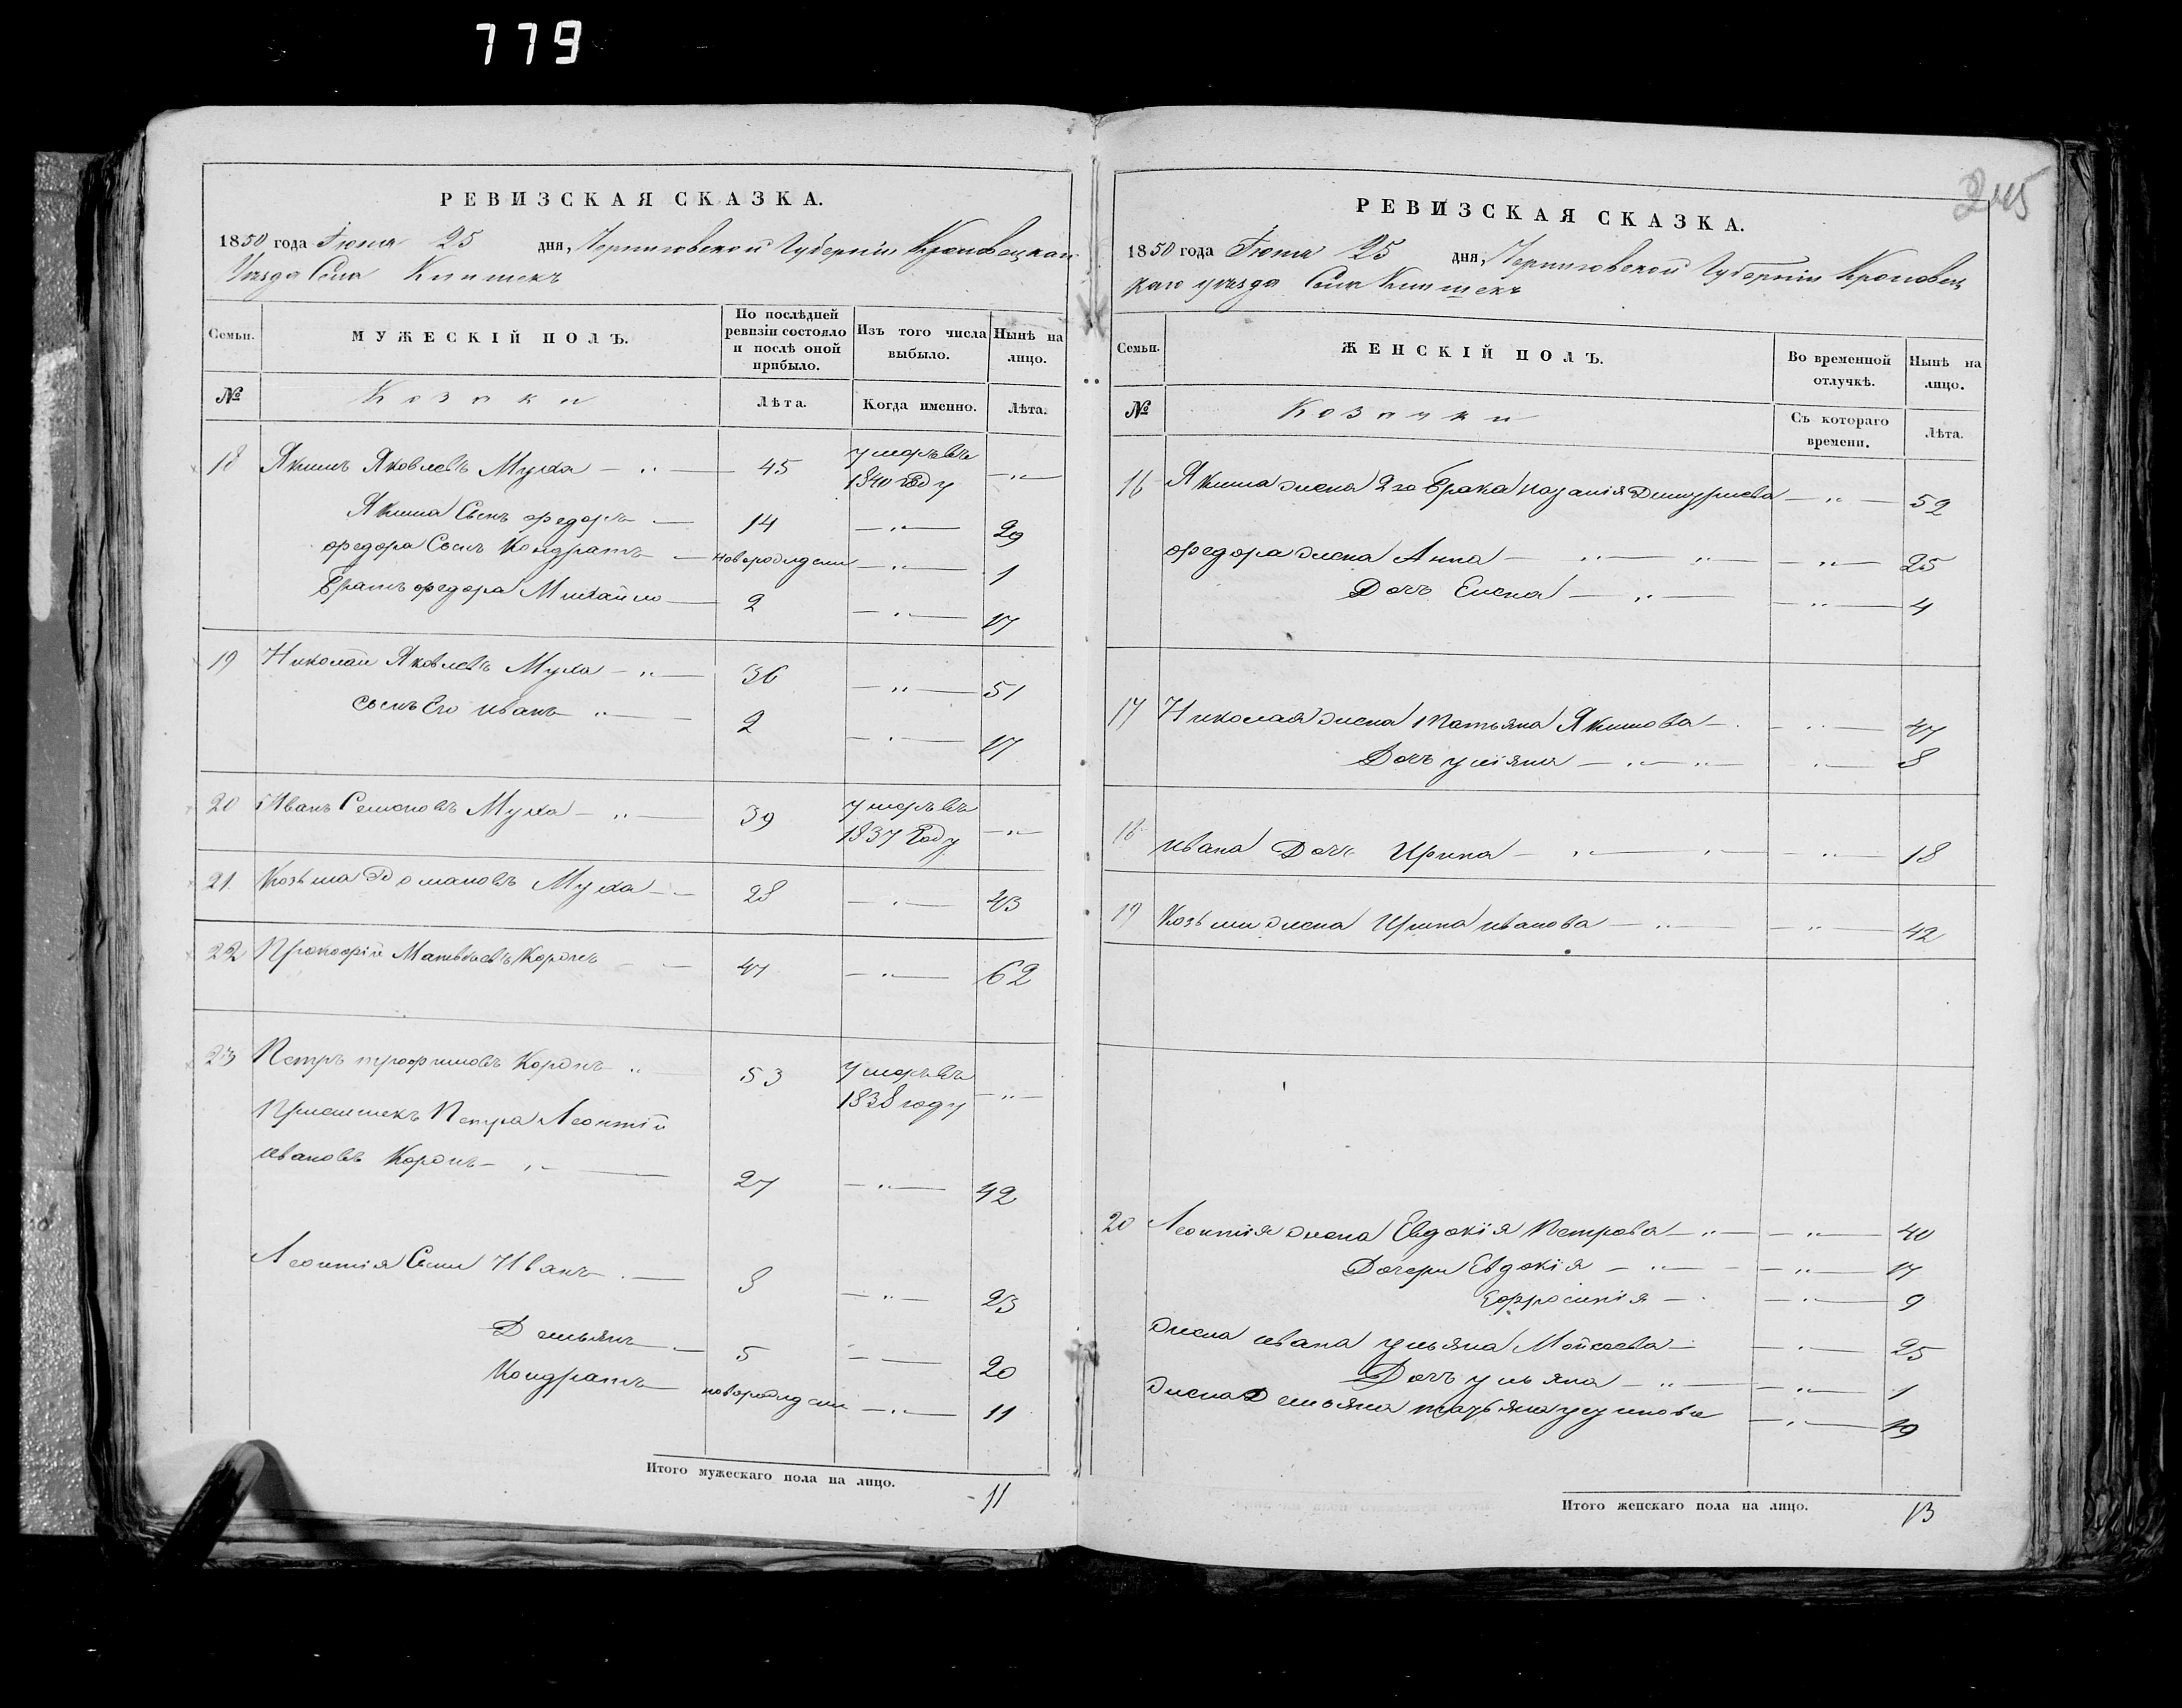 779
РЕВИЗСКАЯ СКАЗКА.
1850 года Іюня 25 дня, Черниговской Губерніи Кролевецкаго
Уезда Села Клишекъ
Семьи.
МУЖЕСКІЙ ПОЛЪ.
По послѣдней ревизіи состояло и послѣ оной прибыло.
Изъ того числа выбыло.
Нынѣ на лицо.
№
Козаки
Лѣта.
Когда именно.
Лѣта.
18 Якимъ Яковлевъ Муха — 45 умеръ въ 1840 году —
Якима Сынъ Федоръ — 14 — 29
Федора Сынъ Кондратъ — новорожден — 1
Братъ Федора Михайло — 2 — 17
19 Николай Яковлевъ Муха — 36 — 51
сынъ Его иванъ — 2 — 17
20 Иванъ Семеновъ Муха — 39 умеръ въ 1837 Году —
21 Козьма Романовъ Муха — 28 — 43
22 Прокофій Матвѣевъ Коропъ — 47 — 62
23 Петръ трофимовъ Коропъ 53 умеръ въ 1838 году —
Приемшекъ Петра Леонтій
ивановъ Коропъ — 27 — 42
Леонтія Сыны Иванъ — 8 — 23
Демьянъ — 5 — 20
Кондратъ новорожден — 11
Итого мужескаго пола на лицо. 11
245
РЕВИЗСКАЯ СКАЗКА.
1850 года Іюня 25 дня, Черниговской Губерніи Кролевец
каго уезда Села Клишекъ
Семьи.
ЖЕНСКІЙ ПОЛЪ.
Во временной отлучкѣ.
Нынѣ на лицо.
№
Козачки
Съ котораго времени.
Лѣта.
16 Якима жена 2го брака — 52
Федора жена Анна — 25
Дочь Елена — 4
17 Николая жена Татьяна Якимова — 47
Дочь уліяна — 8
18 ивана Дочь Ирина — 18
19 Козьмы жена Ирина иванова — 42
20 Леонтія жена Евдокія Петрова — 40
Дочери Евдокія — 17
Ефросинія — 9
жена ивана ульяна Мойсеева — 25
Дочь ульяна — 1
жена Демьяна — 19
Итого женскаго пола на лицо. 13